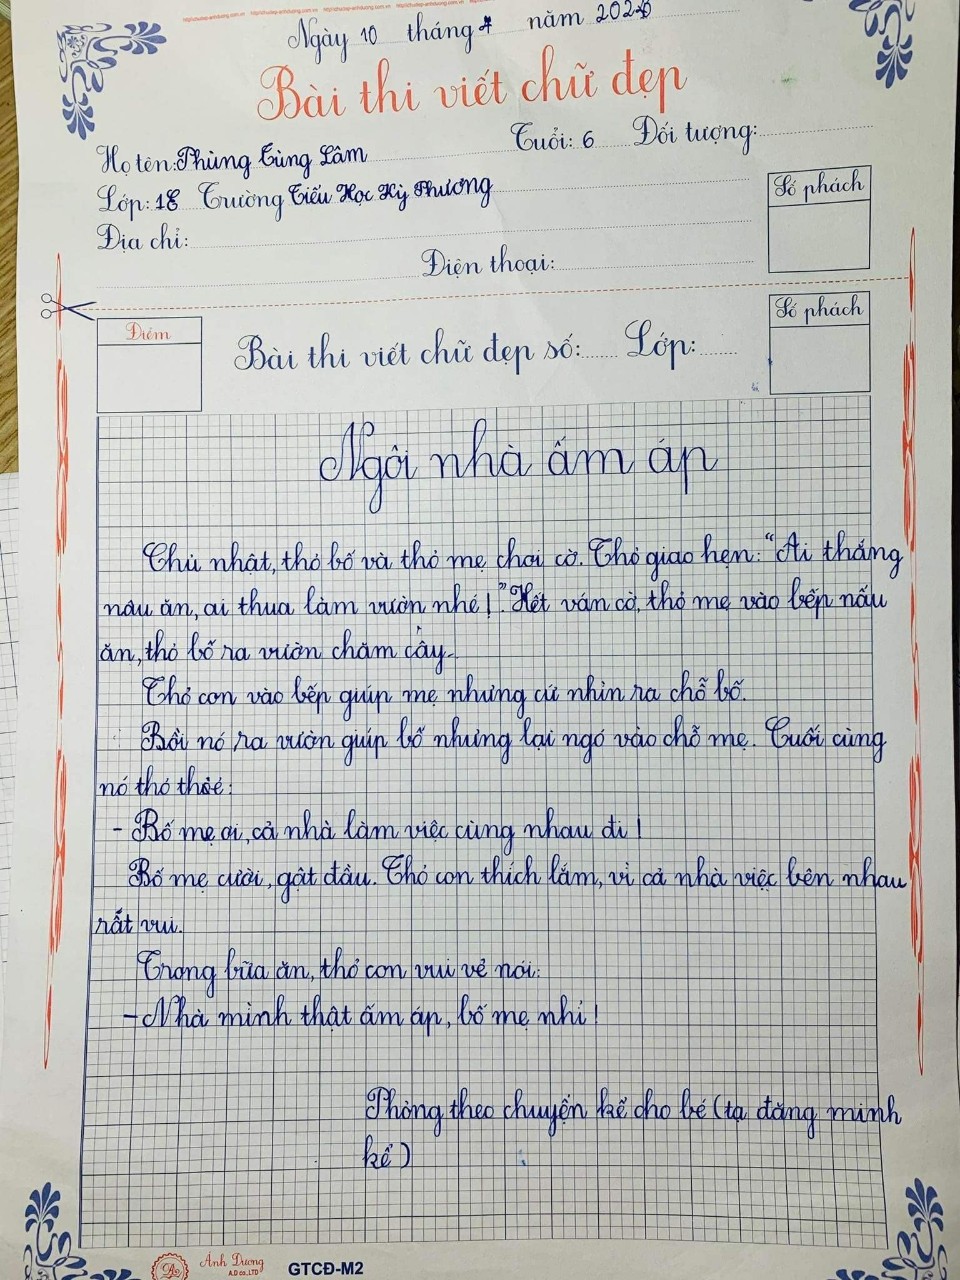 Ngày 10 tháng 4 năm 2026
Bài thi viết chữ đẹp
Họ tên: Phùng Tùng Lâm Tuổi: 6 Đối tượng:
Lớp: 1E Trường Tiểu Học Kỳ Phương
Số phách
Địa chỉ:
Điện thoại:
Số phách
Điểm
Bài thi viết chữ đẹp số: Lớp:
Ngôi nhà ấm áp
Chủ nhật, thỏ bố và thỏ mẹ chơi cờ. Thỏ giao hẹn: "Ai thắng
nấu ăn, ai thua làm vườn nhé!". Hết ván cờ, thỏ mẹ vào bếp nấu
ăn, thỏ bố ra vườn chăm cây.
Thỏ con vào bếp giúp mẹ nhưng cứ nhìn ra chỗ bố.
Rồi nó ra vườn giúp bố nhưng lại ngó vào chỗ mẹ. Cuối cùng
nó thỏ thẻ:
- Bố mẹ ơi, cả nhà làm việc cùng nhau đi!
Bố mẹ cười, gật đầu. Thỏ con thích lắm, vì cả nhà việc bên nhau
rất vui.
Trong bữa ăn, thỏ con vui vẻ nói:
- Nhà mình thật ấm áp, bố mẹ nhỉ!
Phỏng theo chuyện kể cho bé (tạ đăng minh
kể)
Ánh Dương
A.D co.,LTD
GTCĐ-M2